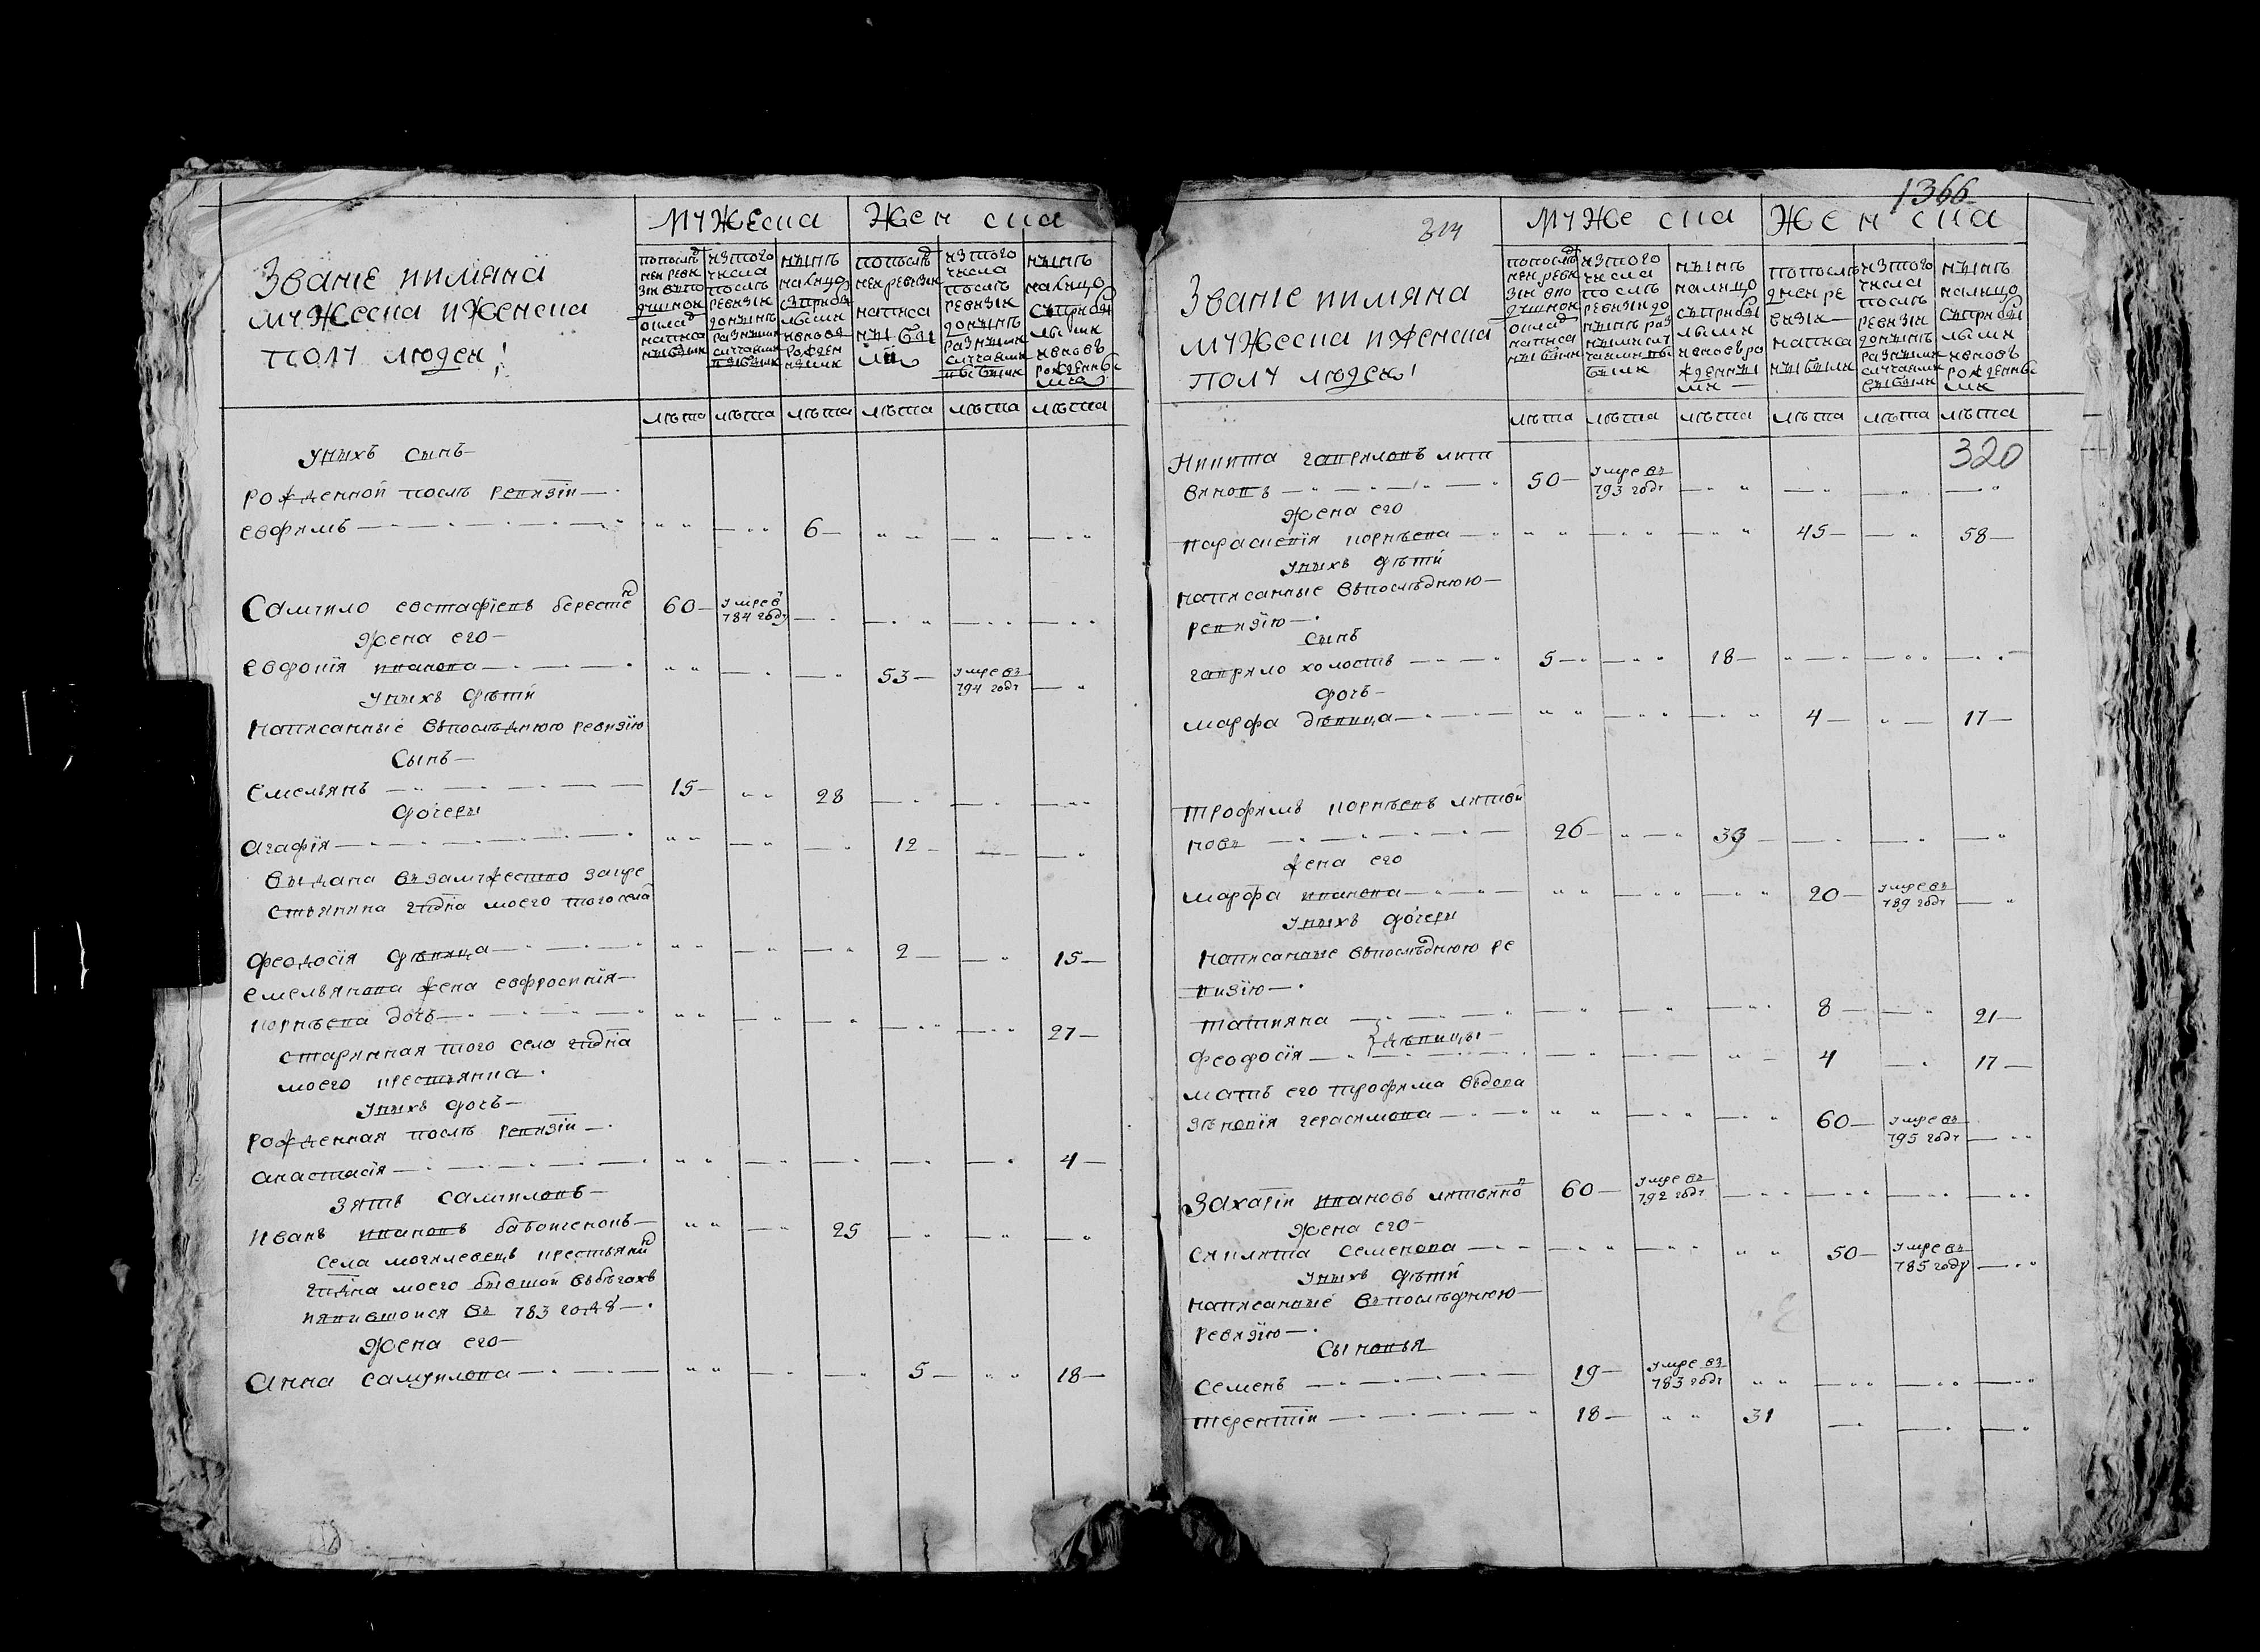 Званiе иимяна
мужеска иженска
полу людеи
мужеска
женска
попослѣд
неи реви
зiи вто
душной
оклад
написа
ны были
изтого
числа
послѣ
ревизiи
донынѣ
разными
случаями
выбыли
нынѣ
налицо
съприбы
лыми
ивновь
рожден
ными
попослѣд
неи ревизiи
написа
ны бы
ли
изтого
числа
послѣ
ревизiи
донынѣ
разными
случаями
выбыли
нынѣ
налицо
съприбы
лыми
ивновь
рожденны
ми
лѣта лѣта лѣта лѣта лѣта лѣта
унихъ сынъ
рожденной послѣ ревизiи
евфимъ 6
Самуило евстафiевъ берест 60 умре в
784 году
жена его
евдокiя иванова 53 умре въ
794 году
унихъ дѣти
написанные впослѣднюю ревизiю
Сынъ
емельянъ 15 28
дочери
агафiя 12
выдана взамужество закре
стьянина гпдна моего тогосела
феодосiя дѣвица 2 15
емельянова жена евфросинiя
корнѣева дочь 27
старинная того села гпдна
моего крестьянка
унихъ дочь
рожденная послѣ ревизiи
анастасiя 4
Зять самуиловъ
Иванъ ивановъ 25
села могилевецъ крестьянин
гпдна моего бывшои вбѣгахъ
иявившоися въ 783 годѣ
жена его
Анна самуилова 5 18
1366
314
Званiе иимяна
мужеска иженска
полу людеи
мужеска
женска
попослѣд
неи реви
зiи впо
душной
оклад
написа
ны были
изтого
числа
послѣ
ревизiи до
нынѣ раз
ными слу
чаями вы
были
нынѣ
налицо
съприбы
лыми
ивновь ро
жденны
ми
попослѣ
днеи ре
визiи
написа
ны были
изтого
числа
послѣ
ревизiи
донынѣ
разными
случаями
выбыли
нынѣ
налицо
съприбы
лыми
ивновь
рожденны
ми
лѣта лѣта лѣта лѣта лѣта лѣта
320
Никита гавриловъ лит
виновъ 50 умре въ
793 году
жена его
парасковiя корнѣева 45 58
унихъ дѣти
написанные впослѣднюю
ревизiю
сынъ
гаврило холостъ 5 18
дочь
марфа дѣвица 4 17
трофимъ корнѣевъ литви
новъ 26 39
жена его
марфа иванова 20 умре въ
789 году
унихъ дочери
написанные впослѣднюю ре
визiю
татияна 8 21
дѣвицы
феодосiя 4 17
мать его трофима вдова
зѣновiя герасимова 60 умре въ
795 году
Захарiи ивановъ литвино 60 умре въ
792 году
жена его
семенова 50 умре въ
785 году
унихъ дѣти
написанные впослѣднюю
ревизiю
Сыновья
семенъ 19 умре въ
783 году
терентiи 18 31